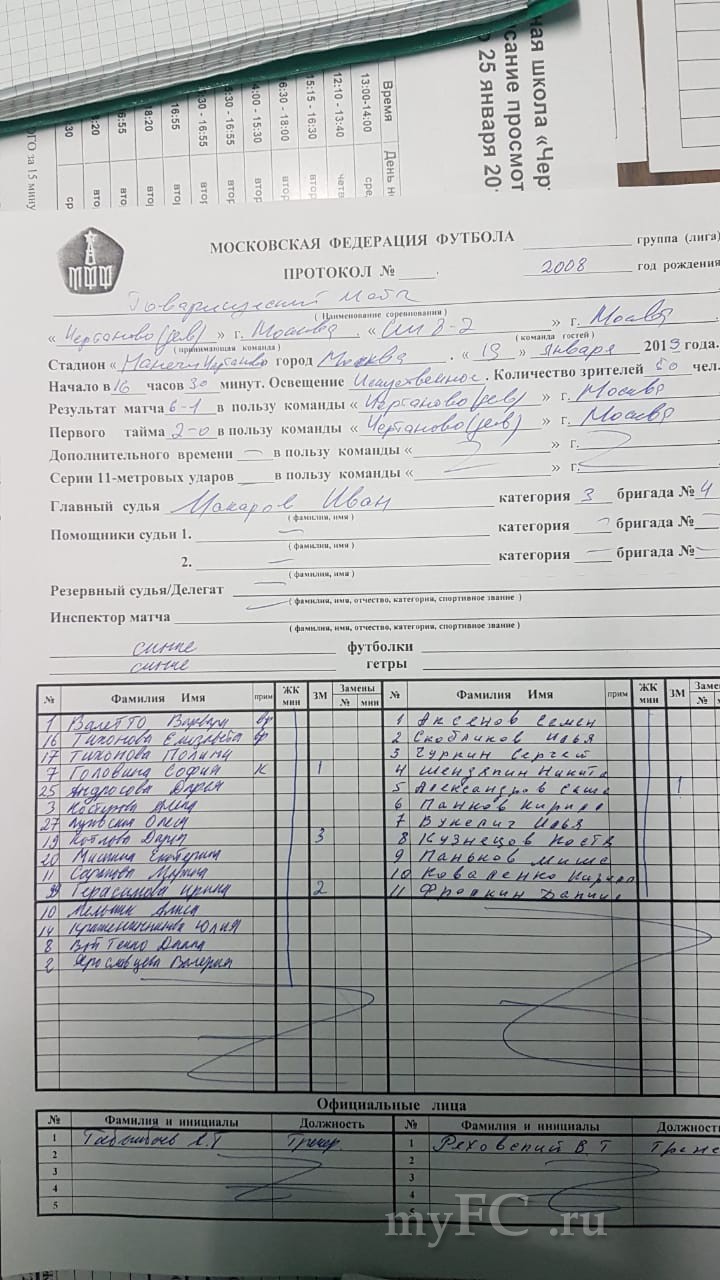 ная школа «Чер
сание просмот
25 января 20
Время
День н
13:00-14:00
сре
12:10 - 13:40
четв
15:15 - 16:30
втор
16:30 - 18:00
втор
14:00 - 15:30
втор
15:30 - 16:55
втор
16:55
18:20
ГО за 15 мину
МФФ
МОСКОВСКАЯ ФЕДЕРАЦИЯ ФУТБОЛА группа (лига)
ПРОТОКОЛ № 2008 год рождения
Товарищеский матч
( Наименование соревнования )
« Чертаново (дев) » г. Москва . « » г. Москва .
( принимающая команда ) ( команда гостей )
Стадион « Манеж Чертаново город Москва . « 19 » января 2019 года.
Начало в 16 часов 30 минут. Освещение Искуственное . Количество зрителей 50 чел.
Результат матча 6-1 в пользу команды « Чертаново (дев) » г. Москва
Первого тайма 2-0 в пользу команды « Чертаново (дев) » г. Москва
Дополнительного времени — в пользу команды « » г.
Серии 11-метровых ударов в пользу команды « » г.
Главный судья Макаров Иван категория 3 бригада № 4
( фамилия, имя )
Помощники судьи 1. — категория бригада №
( фамилия, имя )
2. — категория — бригада №
( фамилия, имя )
Резервный судья/Делегат —
( фамилия, имя, отчество, категория, спортивное звание )
Инспектор матча
( фамилия, имя, отчество, категория, спортивное звание )
синие футболки
синие гетры
№ Фамилия Имя прим ЖК мин ЗМ Замены № мин № Фамилия Имя прим ЖК мин ЗМ Замены №
1 Валетто Варвара вр 1 Аксенов Семен
16 Тихонова Елизавета вр 2 Скобликов Илья
17 Тихонова Полина 3 Чуркин Сергей
7 Головина София К 1 4 Шендяпин Никита
25 Андросова Дарья 5 Александров Саша 1
3 Алена 6 Панков Кирилл
27 Олеся 7 Вукелич Илья
19 Котлова Дарья 3 8 Кузнецов Костя
20 Екатерина 9 Паньков Миша
11 Марина 10 Коваленко Кирилл
Герасимова Ирина 2 11 Фролкин Даниил
10 Алиса
14 Крашенинникова Юлия
8 Диана
2 Ярославцева Валерия
Официальные лица
№ Фамилия и инициалы Должность № Фамилия и инициалы Должност
1 Тренер 1 Ряховский В.Т Трене
2 2
3 3
4 4
5 5
myFC .ru